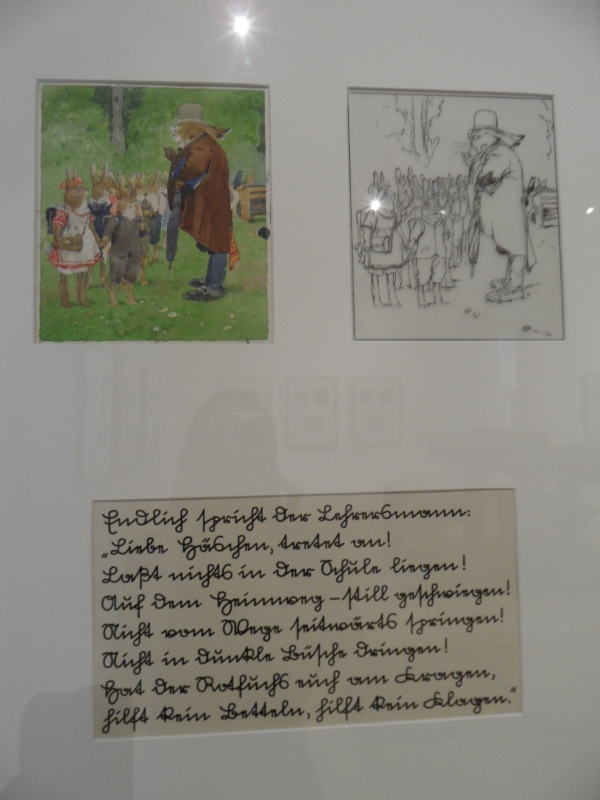 Endlich spricht der Lehrersmann:
„Liebe Häschen, tretet an!
Laßt nichts in der Schule liegen!
Auf dem Heimweg – still geschwiegen!
Nicht vom Wege seitwärts springen!
Nicht in dunkle Büsche dringen!
Hat der Rotfuchs euch am Kragen,
hilft kein Betteln, hilft kein Klagen.“